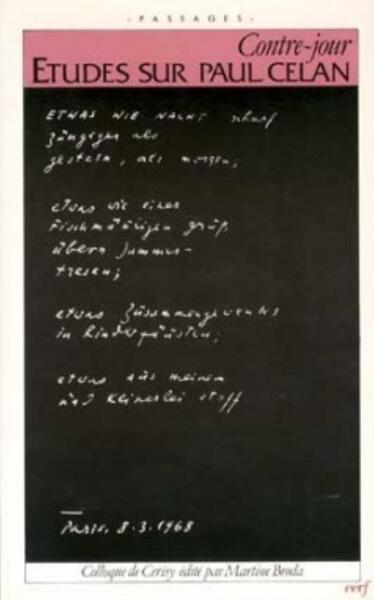 · PASSAGES ·
Contre-jour
ETUDES SUR PAUL CELAN
ETWAS WIE NACHT, scharf
züngiger als
gestern, als morgen;
etwas wie einer
Fischmäuligen Gruß
übern Jammer-
tresen;
etwas Zusammengewehtes
in Kinderfäusten;
etwas aus meinem
und keinerlei Stoff
Paris, 8.3.1968
Colloque de Cerisy édité par Martine Broda
cerf